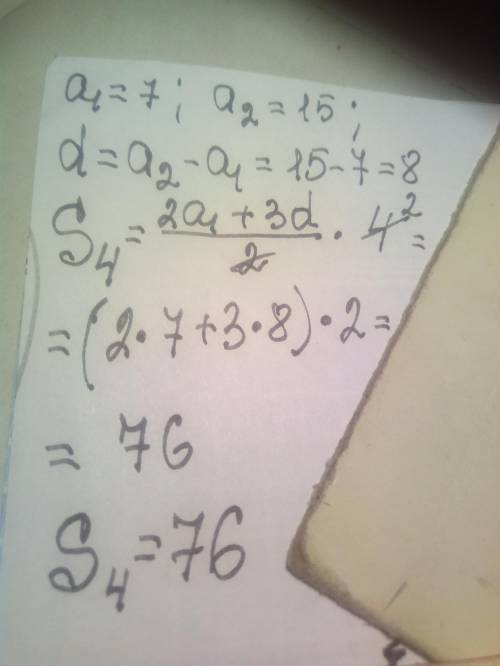 a₁ = 7; a₂ = 15;
d = a₂ - a₁ = 15 - 7 = 8
S₄ = (2a₁ + 3d)/2 · 4² =
= (2 · 7 + 3 · 8) · 2 =
= 76
S₄ = 76